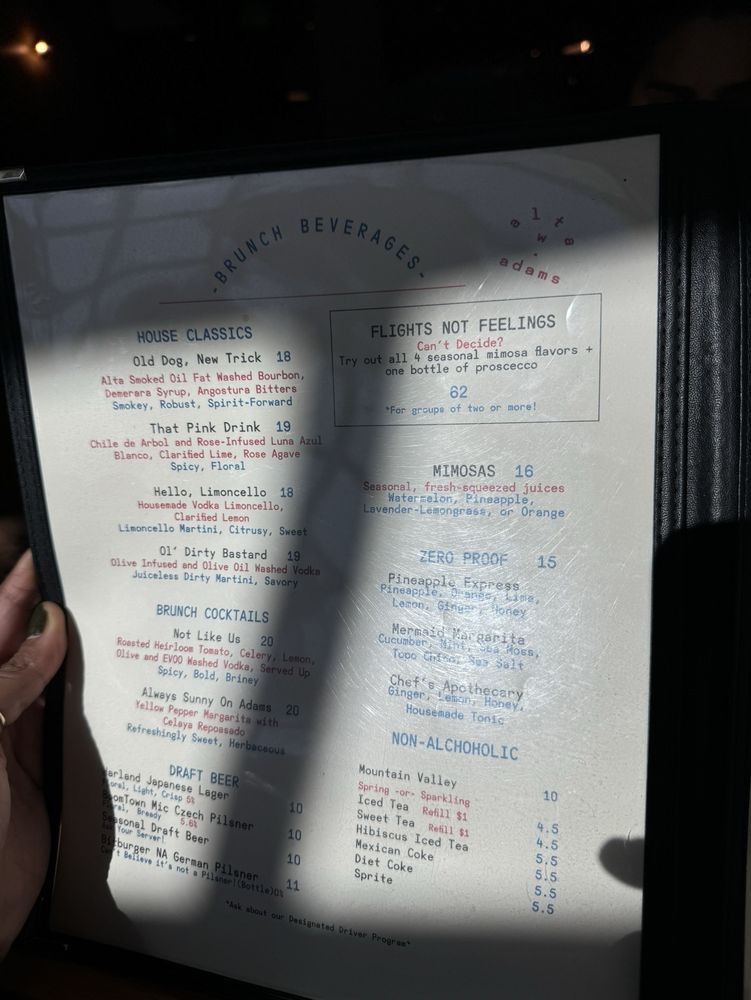 -BRUNCH BEVERAGES-
alta
adams
HOUSE CLASSICS
Old Dog, New Trick 18
Alta Smoked Oil Fat Washed Bourbon,
Demerara Syrup, Angostura Bitters
Smokey, Robust, Spirit-Forward
That Pink Drink 19
Chile de Arbol and Rose-Infused Luna Azul
Blanco, Clarified Lime, Rose Agave
Spicy, Floral
Hello, Limoncello 18
Housemade Vodka Limoncello,
Clarified Lemon
Limoncello Martini, Citrusy, Sweet
Ol' Dirty Bastard 19
Olive Infused and Olive Oil Washed Vodka
Juiceless Dirty Martini, Savory
BRUNCH COCKTAILS
Not Like Us 20
Roasted Heirloom Tomato, Celery, Lemon,
Olive and EVOO Washed Vodka, Served Up
Spicy, Bold, Briney
Always Sunny On Adams 20
Yellow Pepper Margarita with
Celaya Repoasado
Refreshingly Sweet, Herbaceous
DRAFT BEER
Harland Japanese Lager 10
Floral, Light, Crisp 5%
BoomTown Mic Czech Pilsner 10
Floral, Bready 5.6%
Seasonal Draft Beer 10
Ask Your Server!
Bitburger NA German Pilsner 11
Can't Believe it's not a Pilsner!(Bottle)0%
FLIGHTS NOT FEELINGS
Can't Decide?
Try out all 4 seasonal mimosa flavors +
one bottle of proscecco
62
*For groups of two or more!
MIMOSAS 16
Seasonal, fresh-squeezed juices
Watermelon, Pineapple,
Lavender-Lemongrass, or Orange
ZERO PROOF 15
Pineapple Express
Pineapple, Orange, Lime,
Lemon, Ginger, Honey
Mermaid Margarita
Cucumber, Mint, Sea Moss,
Topo Chico, Sea Salt
Chef's Apothecary
Ginger, Lemon, Honey,
Housemade Tonic
NON-ALCHOHOLIC
Mountain Valley 10
Spring -or- Sparkling
Iced Tea Refill $1 4.5
Sweet Tea Refill $1 4.5
Hibiscus Iced Tea 5.5
Mexican Coke 5.5
Diet Coke 5.5
Sprite 5.5
*Ask about our Designated Driver Program*